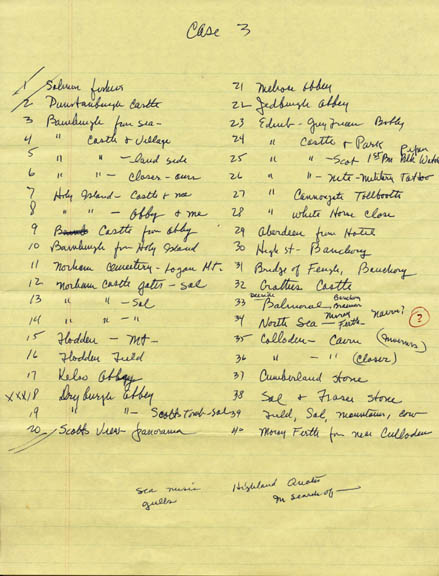 Case 3
1 Salmon fishers
2 Dunstanburgh Castle
3 Bamburgh from sea -
4 " Castle & Village
5 " " - land side
6 " " - closer - ours
7 Holy Island - Castle & me
8 " " - Abby & me
9 Castle from Abby
10 Bamburgh from Holy Island
11 Norham Cemetery - Logan Mt.
12 Norham Castle gates - Sal
13 " " " - Sal
14 " " " -
15 Flodden - Mt -
16 Flodden Field
17 Kelso Abbey
XXX18 Dryburgh Abbey
19 " " - Scotts Tomb - Sal
20 Scotts View - panorama
21 Melrose Abbey
22 Jedburgh Abbey
23 Edinb - Greyfriars Bobby
24 " Castle & Park
25 " " - Scot 1st Bn Blk Watch Piper
26 " " - Mt - Military Tattoo
27 " Cannongate Tollbooth
28 " White Horse Close
29 Aberdeen from Hotel
30 High St - Banchory
31 Bridge of Feugh, Banchory
32 Crathes Castle
33 Deeside Balmoral - Banchory Braemar
34 North Sea - Moray Firth - name? ?
35 Culloden - Cairn (Inverness)
36 " - " (closer)
37 Cumberland Stone
38 Sal & Fraser Stone
39 Field, Sal, mountains, cow
40 Moray Firth from near Culloden
Sea music
gulls
Highland Quotes
In search of —